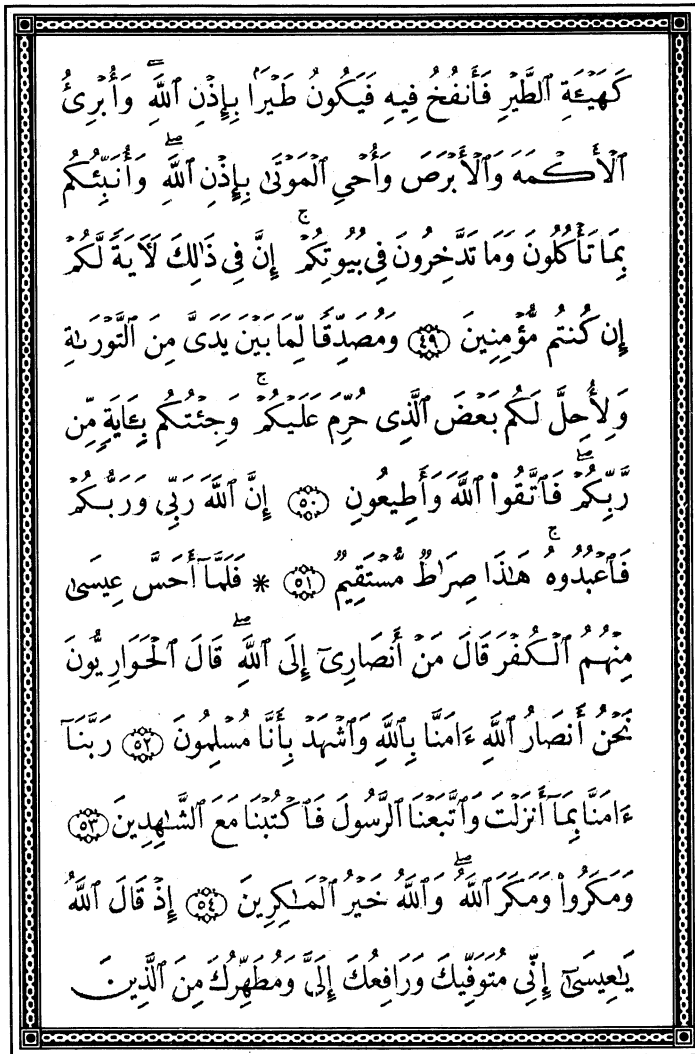 كَهَيۡـَٔةِ ٱلطَّيۡرِ فَأَنفُخُ فِيهِ فَيَكُونُ طَيۡرَۢا بِإِذۡنِ ٱللَّهِۖ وَأُبۡرِئُ
ٱلۡأَكۡمَهَ وَٱلۡأَبۡرَصَ وَأُحۡيِ ٱلۡمَوۡتَىٰ بِإِذۡنِ ٱللَّهِۖ وَأُنَبِّئُكُم
بِمَا تَأۡكُلُونَ وَمَا تَدَّخِرُونَ فِي بُيُوتِكُمۡۚ إِنَّ فِي ذَٰلِكَ لَأٓيَةٗ لَّكُمۡ
إِن كُنتُم مُّؤۡمِنِينَ ٤٩ وَمُصَدِّقٗا لِّمَا بَيۡنَ يَدَيَّ مِنَ ٱلتَّوۡرَىٰةِ
وَلِأُحِلَّ لَكُم بَعۡضَ ٱلَّذِي حُرِّمَ عَلَيۡكُمۡۚ وَجِئۡتُكُم بِـَٔايَةٖ مِّن
رَّبِّكُمۡۖ فَٱتَّقُواْ ٱللَّهَ وَأَطِيعُونِ ٥٠ إِنَّ ٱللَّهَ رَبِّي وَرَبُّكُمۡ
فَٱعۡبُدُوهُۚ هَٰذَا صِرَٰطٞ مُّسۡتَقِيمٞ ٥١ * فَلَمَّآ أَحَسَّ عِيسَىٰ
مِنۡهُمُ ٱلۡكُفۡرَ قَالَ مَنۡ أَنصَارِيٓ إِلَى ٱللَّهِۖ قَالَ ٱلۡحَوَارِيُّونَ
نَحۡنُ أَنصَارُ ٱللَّهِ ءَامَنَّا بِٱللَّهِ وَٱشۡهَدۡ بِأَنَّا مُسۡلِمُونَ ٥٢ رَبَّنَآ
ءَامَنَّا بِمَآ أَنزَلۡتَ وَٱتَّبَعۡنَا ٱلرَّسُولَ فَٱكۡتُبۡنَا مَعَ ٱلشَّٰهِدِينَ ٥٣
وَمَكَرُواْ وَمَكَرَ ٱللَّهُۖ وَٱللَّهُ خَيۡرُ ٱلۡمَٰكِرِينَ ٥٤ إِذۡ قَالَ ٱللَّهُ
يَٰعِيسَىٰٓ إِنِّي مُتَوَفِّيكَ وَرَافِعُكَ إِلَيَّ وَمُطَهِّرُكَ مِنَ ٱلَّذِينَ